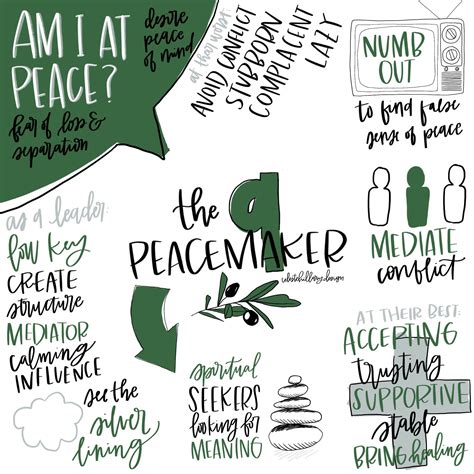 AM I AT
PEACE?
fear of loss &
separation
desire
peace
of mind
at their worst:
AVOID CONFLICT
STUBBORN
COMPLACENT
LAZY
NUMB
OUT
to find false
sense of peace
as a leader:
low key
CREATE
structure
MEDIATOR
calming
INFLUENCE
the 9
PEACEMAKER
MEDIATE
conflict
see the
silver
lining
spiritual
SEEKERS
looking for
MEANING
AT THEIR BEST:
ACCEPTING
trusting
SUPPORTIVE
stable
BRING healing